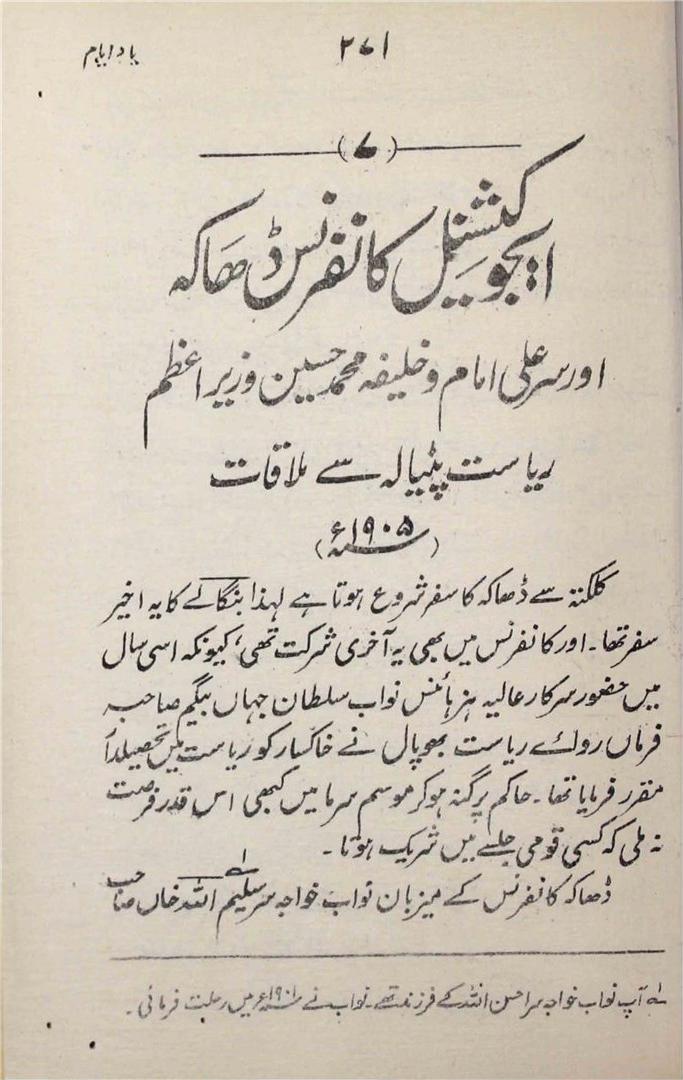 یاد ایام
۲۷۱
(۷)
ایجوکیشنل کانفرنس ڈھاکہ
اور سر علی امام و خلیفہ محمد حسین وزیر اعظم
ریاست پٹیالہ سے ملاقات
(سنہ ۱۹۰۵ء)
کلکتہ سے ڈھاکہ کا سفر شروع ہوتا ہے لہذا بنگالے کا یہ اخیر
سفر تھا۔ اور کانفرنس میں بھی یہ آخری شرکت تھی، کیونکہ اسی سال
میں حضور سرکار عالیہ ہز ہائنس نواب سلطان جہاں بیگم صاحبہ
فرماں روائے ریاست بھوپال نے خاکسار کو ریاست میں تحصیلدار
مقرر فرمایا تھا۔ حاکم پرگنہ ہو کر موسم سرما میں کبھی اس قدر فرصت
نہ ملی کہ کسی قومی جلسے میں شریک ہوتا۔
ڈھاکہ کانفرنس کے میزبان نواب خواجہ سر سلیم اللہ خاں صاحب
لے آپ نواب خواجہ سر احسن اللہ کے فرزند تھے۔ نواب نے سنہ ۱۹۰۱ء میں رحلت فرمائی۔